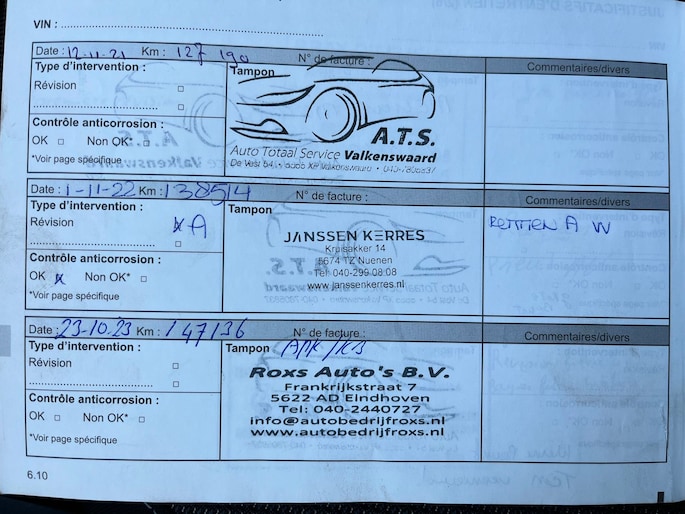 VIN :
Date : 12-11-21 Km : 127 190 N° de facture : Commentaires/divers
Type d'intervention : Tampon
Révision
Contrôle anticorrosion :
OK Non OK*
*Voir page spécifique
A.T.S.
Auto Totaal Service Valkenswaard
Date : 1-11-22 Km : 138514 N° de facture : Commentaires/divers
Type d'intervention : Tampon
Révision x A
Contrôle anticorrosion :
OK x Non OK*
*Voir page spécifique
JANSSEN KERRES
Kruisakker 14
5674 TZ Nuenen
Tel: 040-299 08 08
www.janssenkerres.nl
Date : 23-10-23 Km : 147136 N° de facture : Commentaires/divers
Type d'intervention : Tampon APK/KB
Révision
Contrôle anticorrosion :
OK Non OK*
*Voir page spécifique
Roxs Auto's B.V.
Frankrijkstraat 7
5622 AD Eindhoven
Tel: 040-2440727
info@autobedrijfroxs.nl
www.autobedrijfroxs.nl
6.10